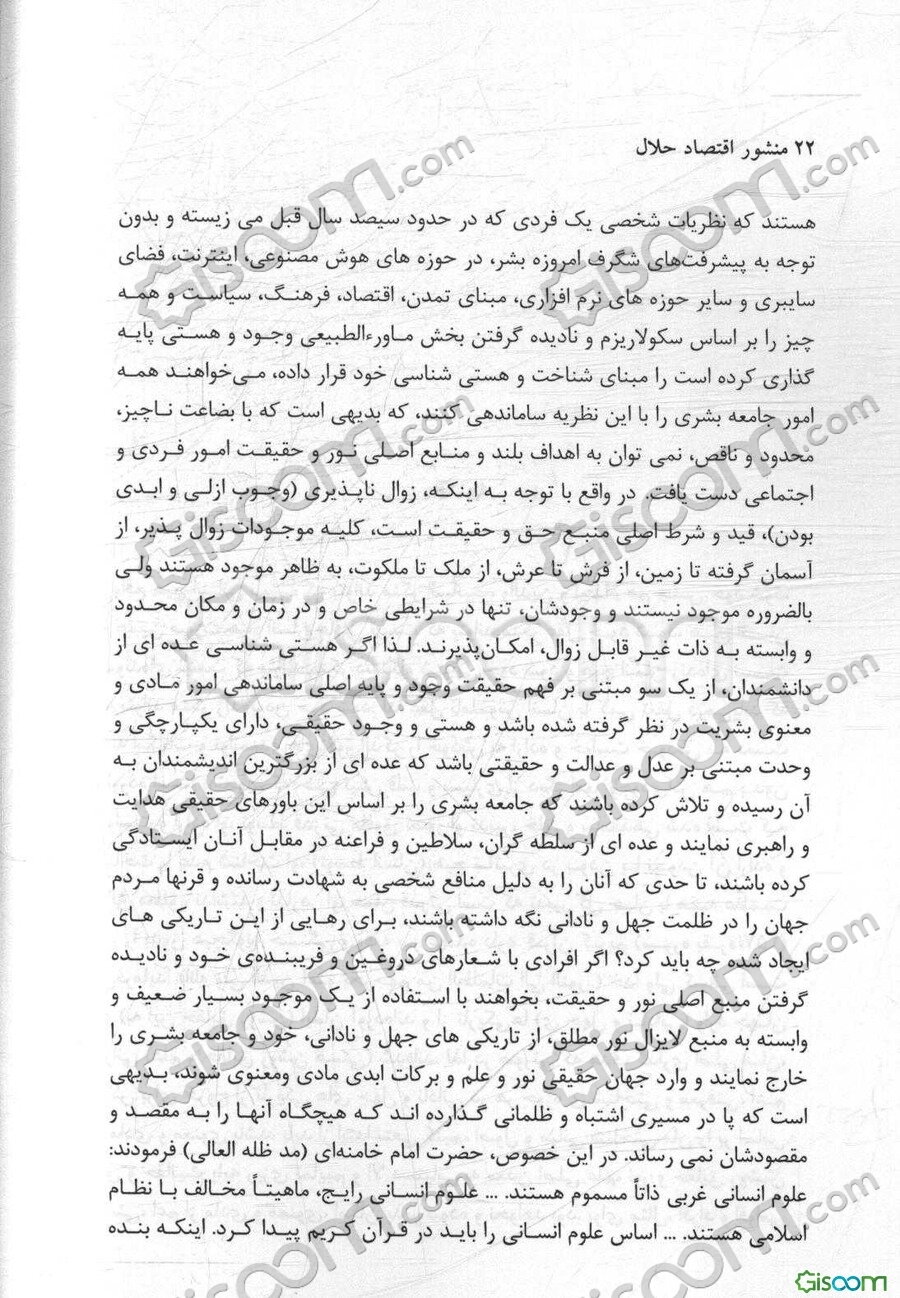 ۲۲ منشور اقتصاد حلال
هستند که نظریات شخصی یک فردی که در حدود سیصد سال قبل می زیسته و بدون
توجه به پیشرفت‌های شگرف امروزه بشر، در حوزه های هوش مصنوعی، اینترنت، فضای
سایبری و سایر حوزه های نرم افزاری، مبنای تمدن، اقتصاد، فرهنگ، سیاست و همه
چیز را بر اساس سکولاریزم و نادیده گرفتن بخش ماوراءالطبیعی وجود و هستی پایه
گذاری کرده است را مبنای شناخت و هستی شناسی خود قرار داده، می‌خواهند همه
امور جامعه بشری را با این نظریه ساماندهی کنند، که بدیهی است که با بضاعت ناچیز،
محدود و ناقص، نمی توان به اهداف بلند و منابع اصلی نور و حقیقت امور فردی و
اجتماعی دست یافت. در واقع با توجه به اینکه، زوال ناپذیری (وجوب ازلی و ابدی
بودن)، قید و شرط اصلی منبع حق و حقیقت است، کلیه موجودات زوال پذیر، از
آسمان گرفته تا زمین، از فرش تا عرش، از ملک تا ملکوت، به ظاهر موجود هستند ولی
بالضروره موجود نیستند و وجودشان، تنها در شرایطی خاص و در زمان و مکان محدود
و وابسته به ذات غیر قابل زوال، امکان‌پذیرند. لذا اگر هستی شناسی عده ای از
دانشمندان، از یک سو مبتنی بر فهم حقیقت وجود و پایه اصلی ساماندهی امور مادی و
معنوی بشریت در نظر گرفته شده باشد و هستی و وجود حقیقی، دارای یکپارچگی و
وحدت مبتنی بر عدل و عدالت و حقیقتی باشد که عده ای از بزرگترین اندیشمندان به
آن رسیده و تلاش کرده باشند که جامعه بشری را بر اساس این باورهای حقیقی هدایت
و راهبری نمایند و عده ای از سلطه گران، سلاطین و فراعنه در مقابل آنان ایستادگی
کرده باشند، تا حدی که آنان را به دلیل منافع شخصی به شهادت رسانده و قرنها مردم
جهان را در ظلمت جهل و نادانی نگه داشته باشند، برای رهایی از این تاریکی های
ایجاد شده چه باید کرد؟ اگر افرادی با شعارهای دروغین و فریبنده‌ی خود و نادیده
گرفتن منبع اصلی نور و حقیقت، بخواهند با استفاده از یک موجود بسیار ضعیف و
وابسته به منبع لایزال نور مطلق، از تاریکی های جهل و نادانی، خود و جامعه بشری را
خارج نمایند و وارد جهان حقیقی نور و علم و برکات ابدی مادی ومعنوی شوند، بدیهی
است که پا در مسیری اشتباه و ظلمانی گذارده اند که هیچگاه آنها را به مقصد و
مقصودشان نمی رساند. در این خصوص، حضرت امام خامنه‌ای (مد ظله العالی) فرمودند:
علوم انسانی غربی ذاتاً مسموم هستند. ... علوم انسانی رایج، ماهیتاً مخالف با نظام
اسلامی هستند. ... اساس علوم انسانی را باید در قرآن کریم پیدا کرد. اینکه بنده
Gisoom